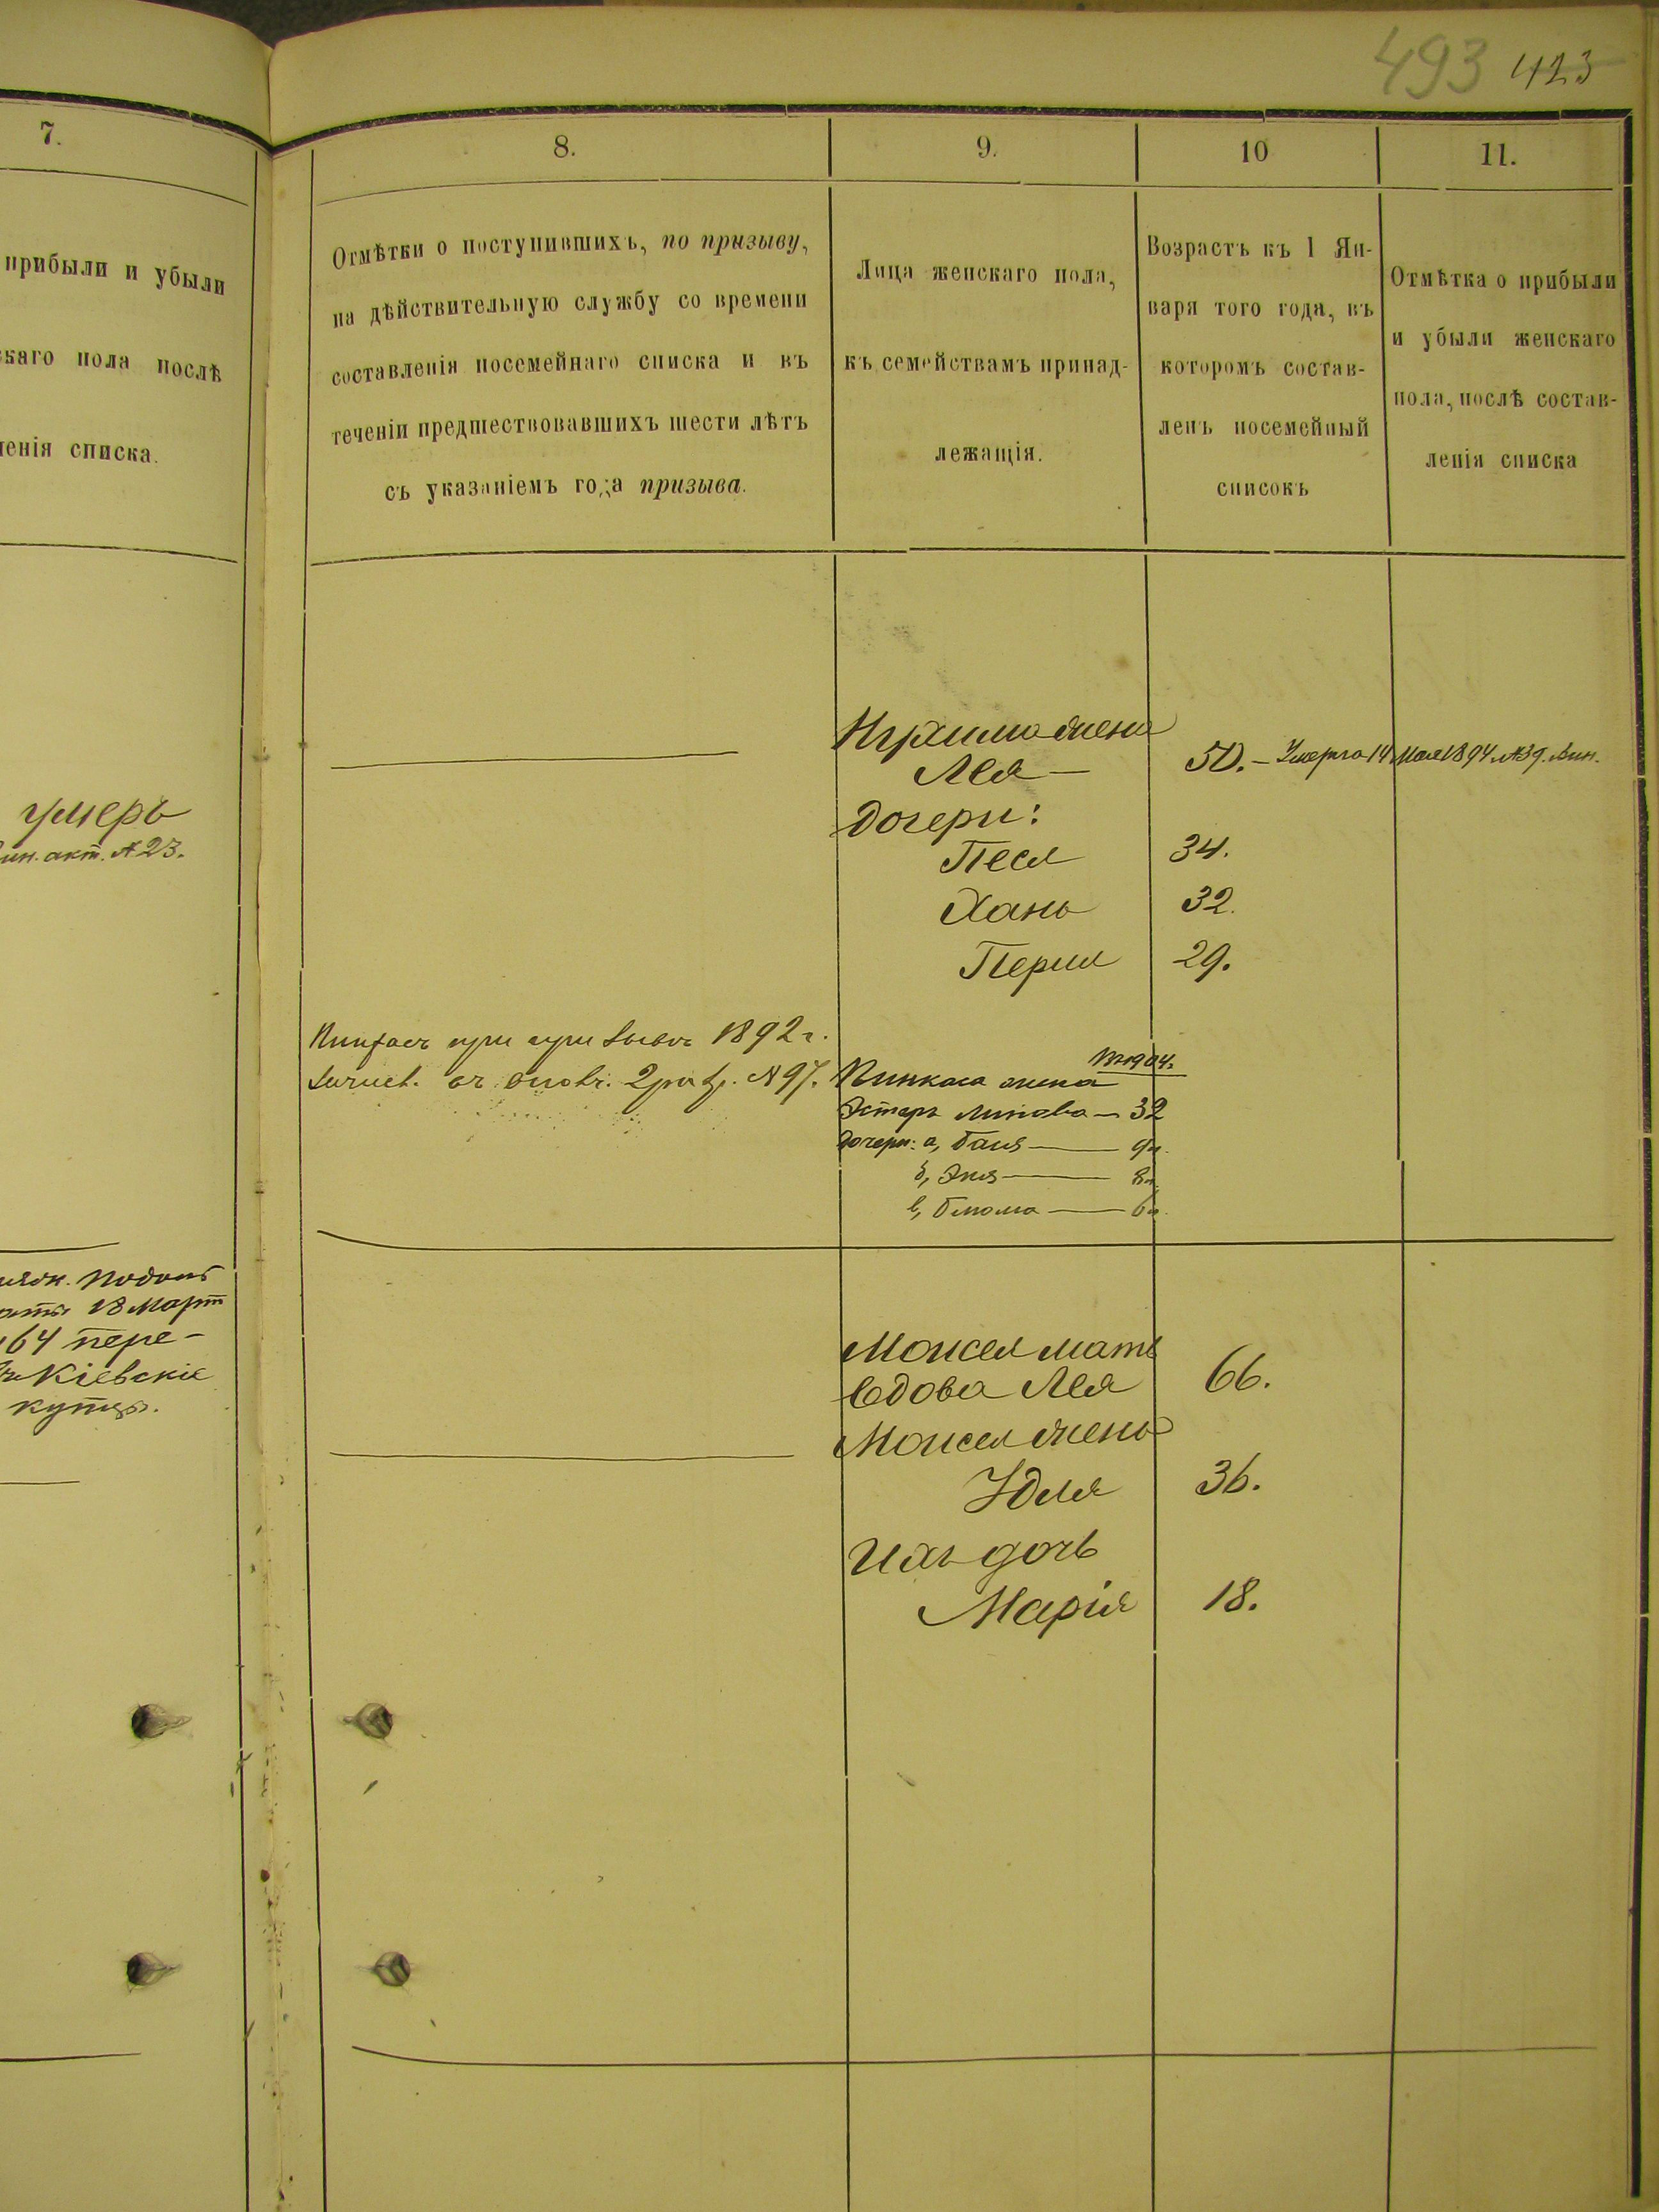 493 423
7.
прибыли и убыли
скаго пола послѣ
ленія списка.
умеръ
акт. №23.
Подол
18 Март
164 пере-
Кіевскіе
купцы.
8.
Отмѣтки о поступившихъ, по призыву,
на дѣйствительную службу со времени
составленія посемейнаго списка и въ
теченіи предшествовавшихъ шести лѣтъ
съ указаніемъ года призыва.
при призывѣ 1892 г.
зачисл. въ ополч. 2 разр. №97.
9.
Лица женскаго пола,
къ семействамъ принад-
лежащія.
жена
Лея —
дочери:
Песя
Хана
Перля
Пинкаса жена
Эстеръ — 32
дочери: а, Бася — 9л.
б, Эня — 8л.
в, Блюма — 6л.
Моисея мать
вдова Лея
Моисея жена
Удля
Ихъ дочь
Марія
10
Возрастъ къ 1 Ян-
варя того года, въ
которомъ состав-
ленъ посемейный
списокъ
50. —
34.
32.
29.
1904.
66.
36.
18.
11.
Отмѣтка о прибыли
и убыли женскаго
пола, послѣ состав-
ленія списка
Умерла 14 Мая 1894 №39. Вин.